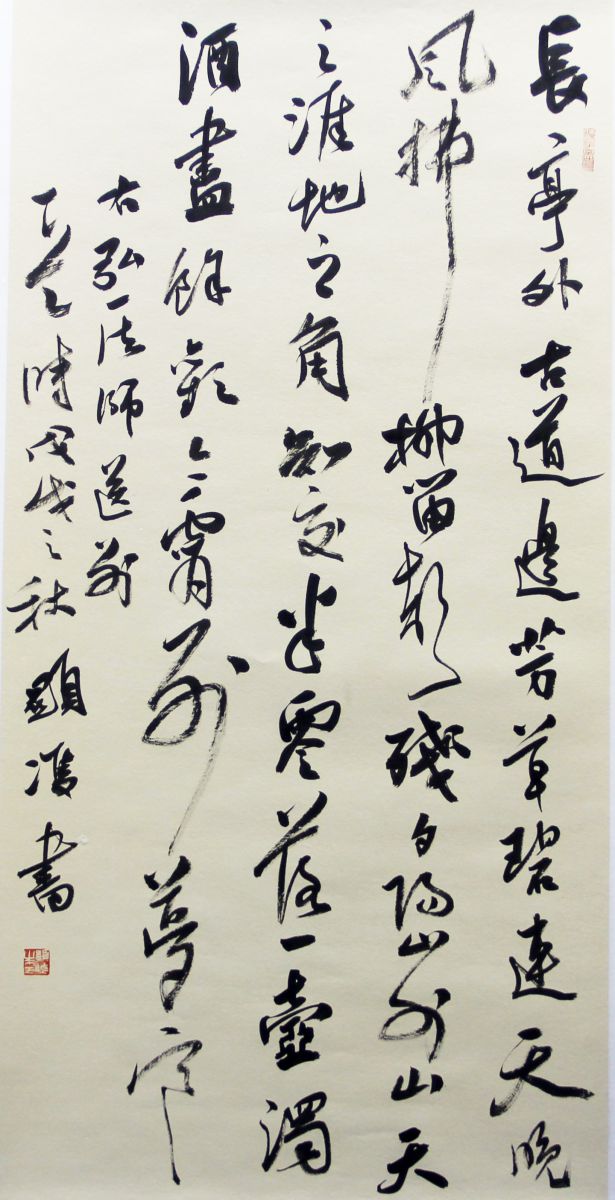 長亭外古道邊芳草碧連天晚
風拂柳笛聲殘夕陽山外山天
之涯地之角知交半零落一壺濁
酒盡餘歡今宵別夢寒
右弘一法師送別
時戊戌之秋顯書